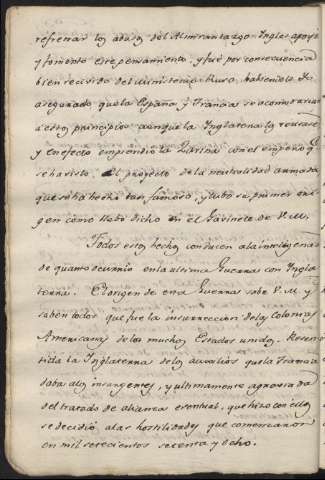 refrenar los abusos del Almirantazgo Ingles apoyó
y fomentó este pensamiento, y fué por consecuencia
bien recivido del ministerio Ruso, habiendole Yo
asegurado, que la España, y Francia se acomodarian
á estos principios aunque la Inglaterra los reusase
y en efecto emprendió la Zarina con el empeño q.e
se ha visto. El proyecto de la neutralidad armada
que se ha hecho tan famoso, y tubo su primer ori-
gen como llebo dicho en el Gavinete de V. M.
Todos estos hechos conducen á la inteligencia
de quanto ocurrió en la ultima Guerra con Ingla-
terra. El origen de esta Guerra sabe V. M. y
saben todos que fue la insurreccion de las Colonias
Americanas de los muchos Estados unidos. Resen-
tida la Inglaterra de los auxilios que la Francia
daba á los insurgentes, y ultimamente agraviada
del tratado de alianza eventual, que hizo con ellos
se decidió á las hostilidades que comenzaron
en mil setecientos setenta y ocho.